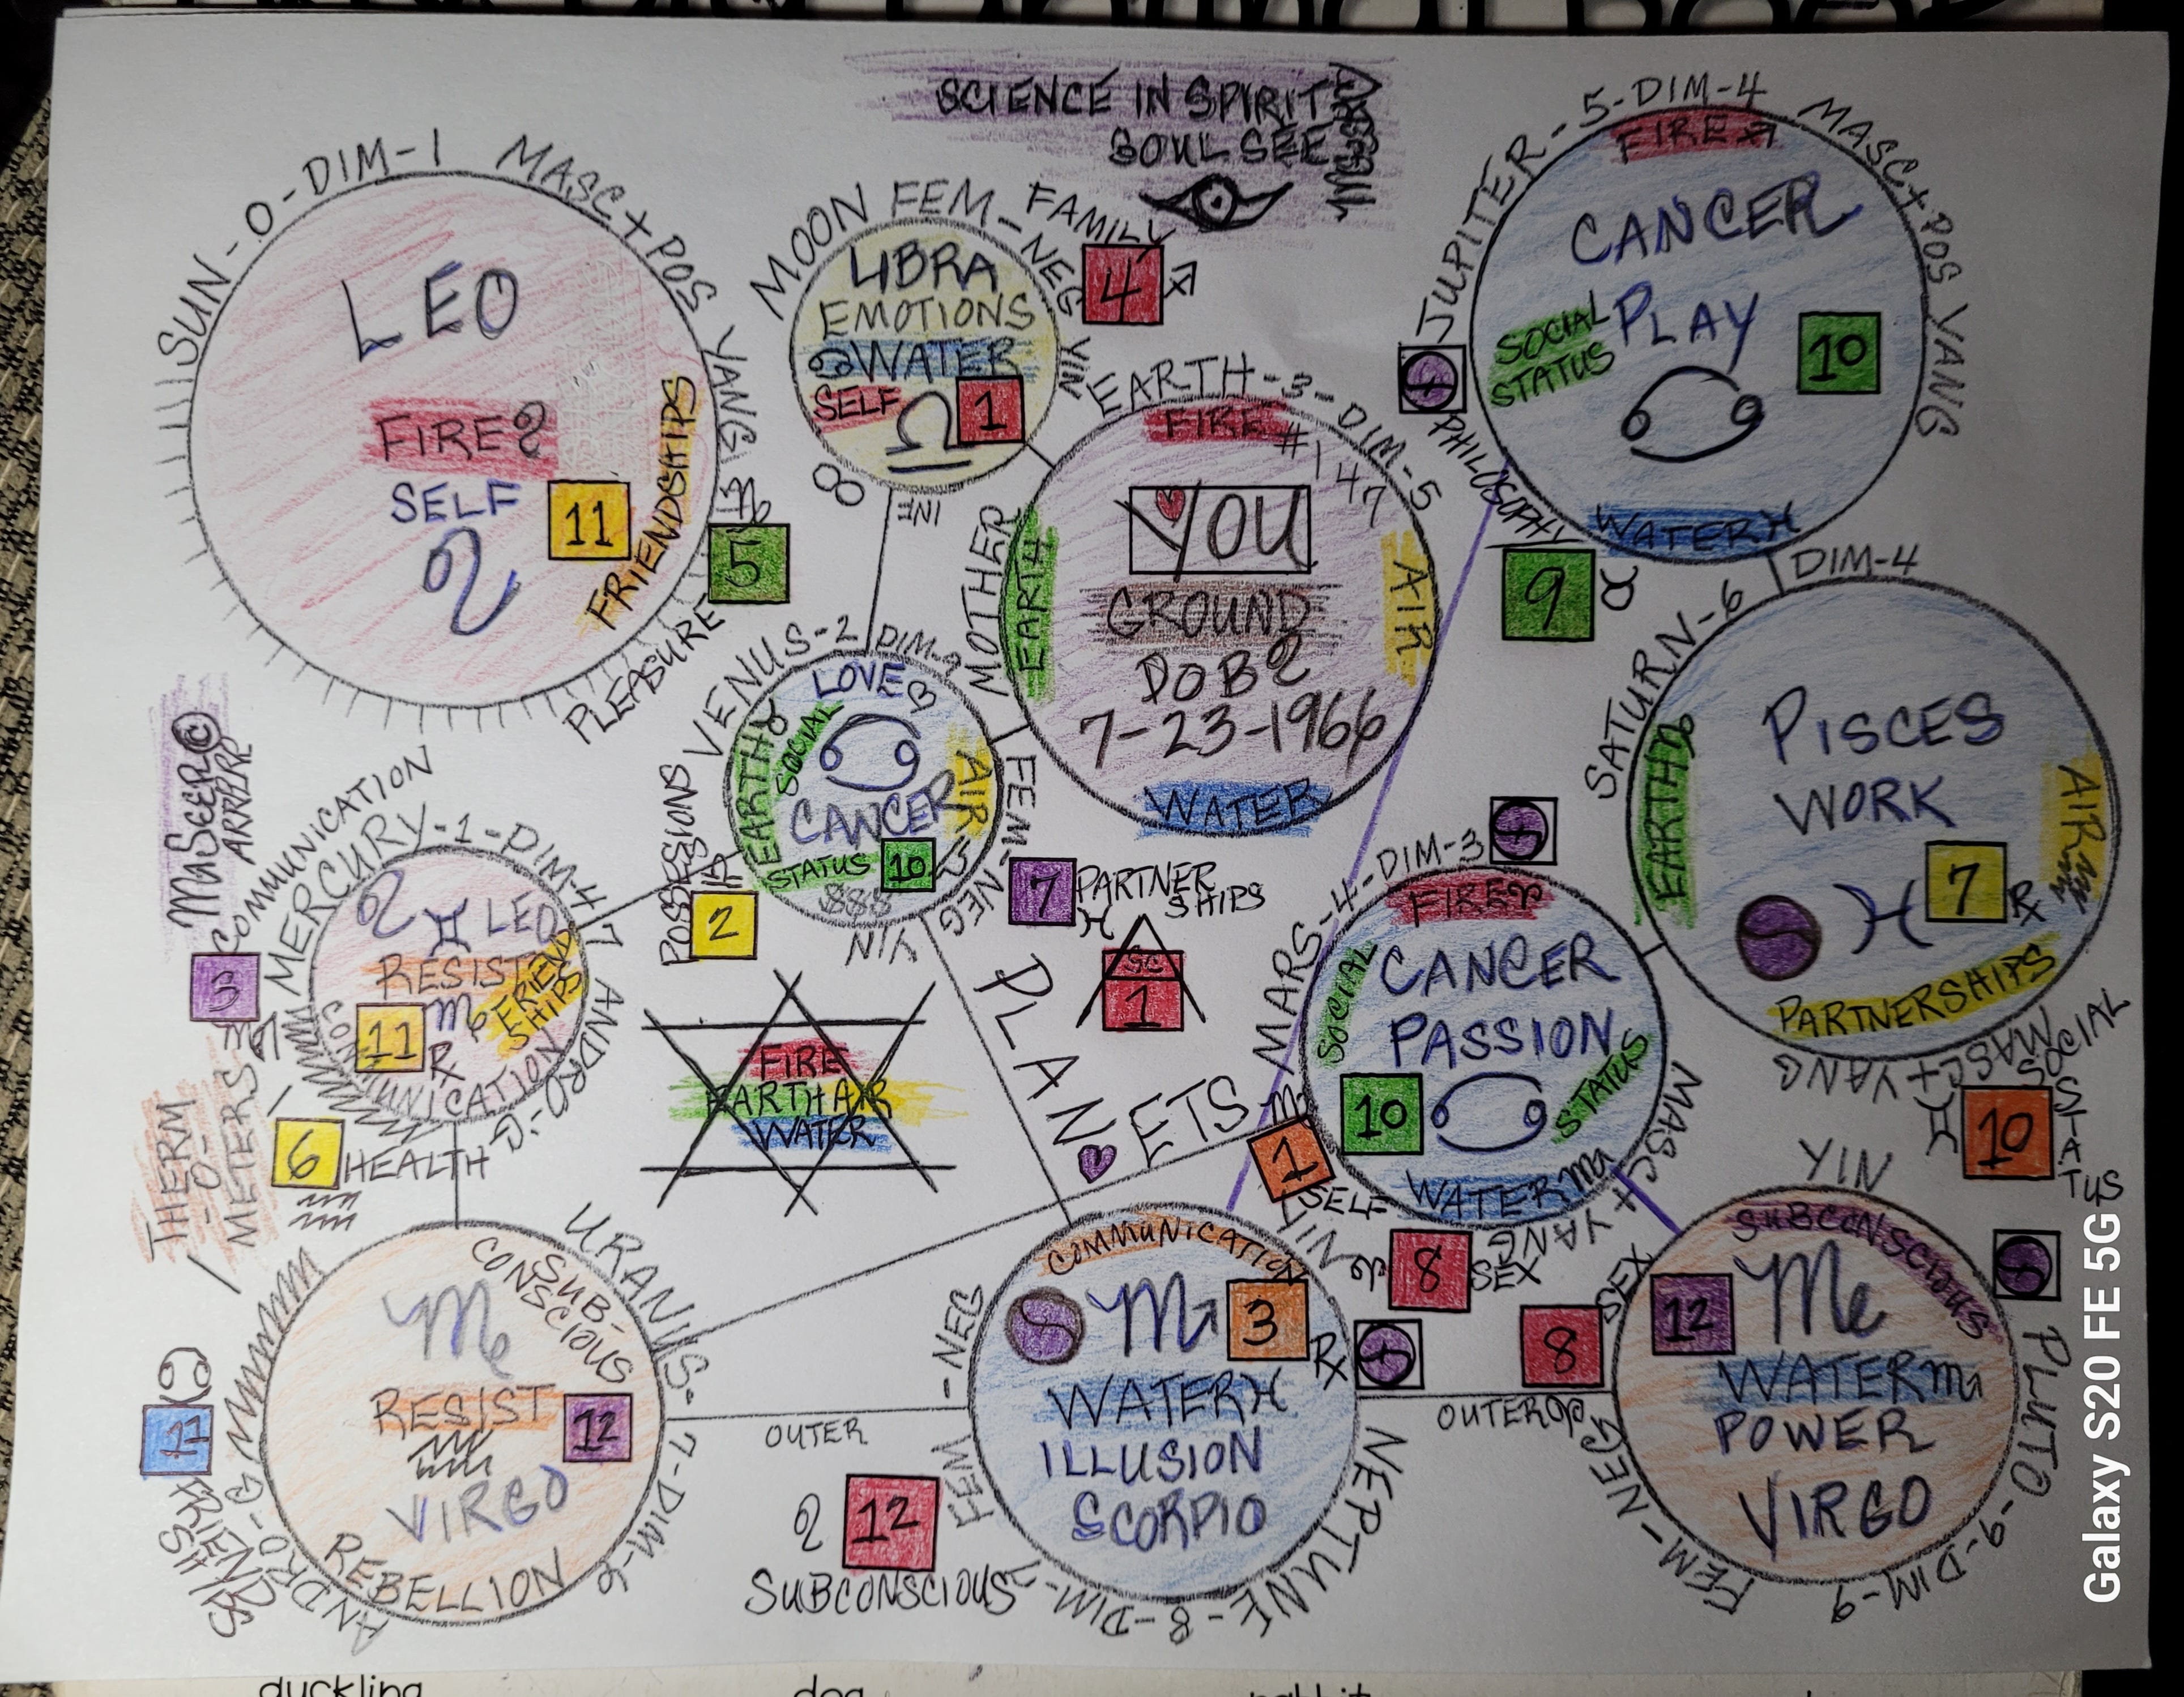 SCIENCE IN SPIRIT
SOUL SEE
SUN-0-DIM-1 MASC+POS YANG
LEO
FIRE♌
SELF
♌
11
FRIENDSHIPS
5
PLEASURE
MOON FEM-NEG YIN
FAMILY
4
♐
LIBRA
EMOTIONS
♋WATER
SELF
♎
1
8
INE
JUPITER-5-DIM-4 MASC+POS YANG
FIRE♐
CANCER
PLAY
SOCIAL
STATUS
10
♋
WATER♓
PHILOSOPHY
9
♉
EARTH-3-DIM-5
FIRE
#147
YOU
GROUND
DOB♌
7-23-1966
MOTHER
EARTH
AIR
WATER
VENUS-2 DIM-2
FEM-NEG
YIN
LOVE
EARTH♉
SOCIAL
♋
CANCER
AIR
STATUS
10
$$$
POSSESSIONS
2
7
PARTNER
SHIPS
♓
SATURN-6
DIM-4
PISCES
WORK
EARTH♑
AIR♒
♓
7
℞
PARTNERSHIPS
MASC+YANG
SOCIAL
STATUS
♊
10
MASEER©
ARRERE
COMMUNICATION
3
MERCURY-1-DIM-4
ANDRO-G
♌
♊
LEO
RESIST
FRIEND
SHIPS
11
℞
COMMUNICATION
THERM
-O-
METERS
6
HEALTH
♒
FIRE
EARTH AIR
WATER
SC
1
PLAN♥ETS
MARS-4-DIM-3
MASC+YANG
FIRE♈
CANCER
PASSION
SOCIAL
STATUS
10
♋
WATER♏
♏
1
SELF
YIN
♈
8
SEX
URANUS-7-DIM-6
ANDRO-G
SUB-
CONSCIOUS
♍
RESIST
♒
12
VIRGO
REBELLION
♋
11
FRIENDSHIPS
OUTER
♌
12
SUBCONSCIOUS
NEPTUNE-8-DIM-7
FEM-NEG
COMMUNICATION
♏
3
℞
WATER♓
ILLUSION
SCORPIO
OUTER♈
8
SEX
PLUTO-9-DIM-9
FEM-NEG
YIN
SUBCONSCIOUS
12
♍
WATER♏
POWER
VIRGO
Galaxy S20 FE 5G
duckling
dog
rabbit